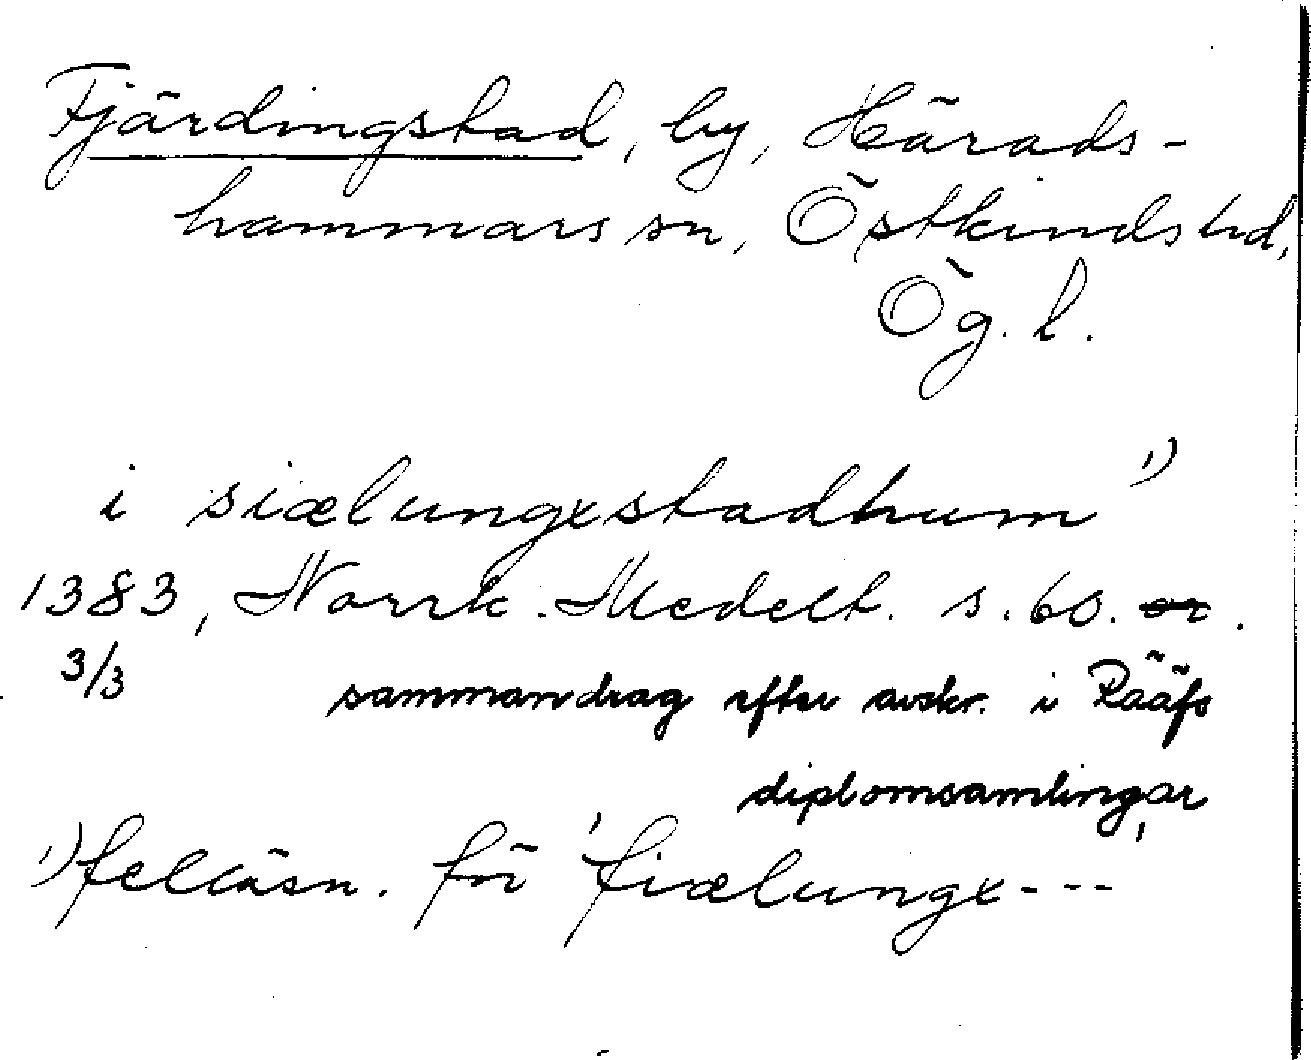 Fjärdingstad, by, Härads-
hammars sn, Östkinds hd,
Ög. l.
i siælungxstadhum 1)
1383, Norrk. Medelt. s. 60. or.
3/3 sammandrag efter avskr. i Rääfs
diplomsamlingar
1) felläsn. för 'fiælungx---'